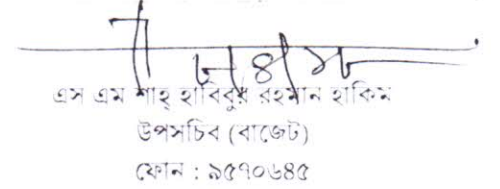 এস এম শাহ্ হাবিবুর রহমান হাকিম
উপসচিব (বাজেট)
ফোন : ৯৫৭০৬৪৫